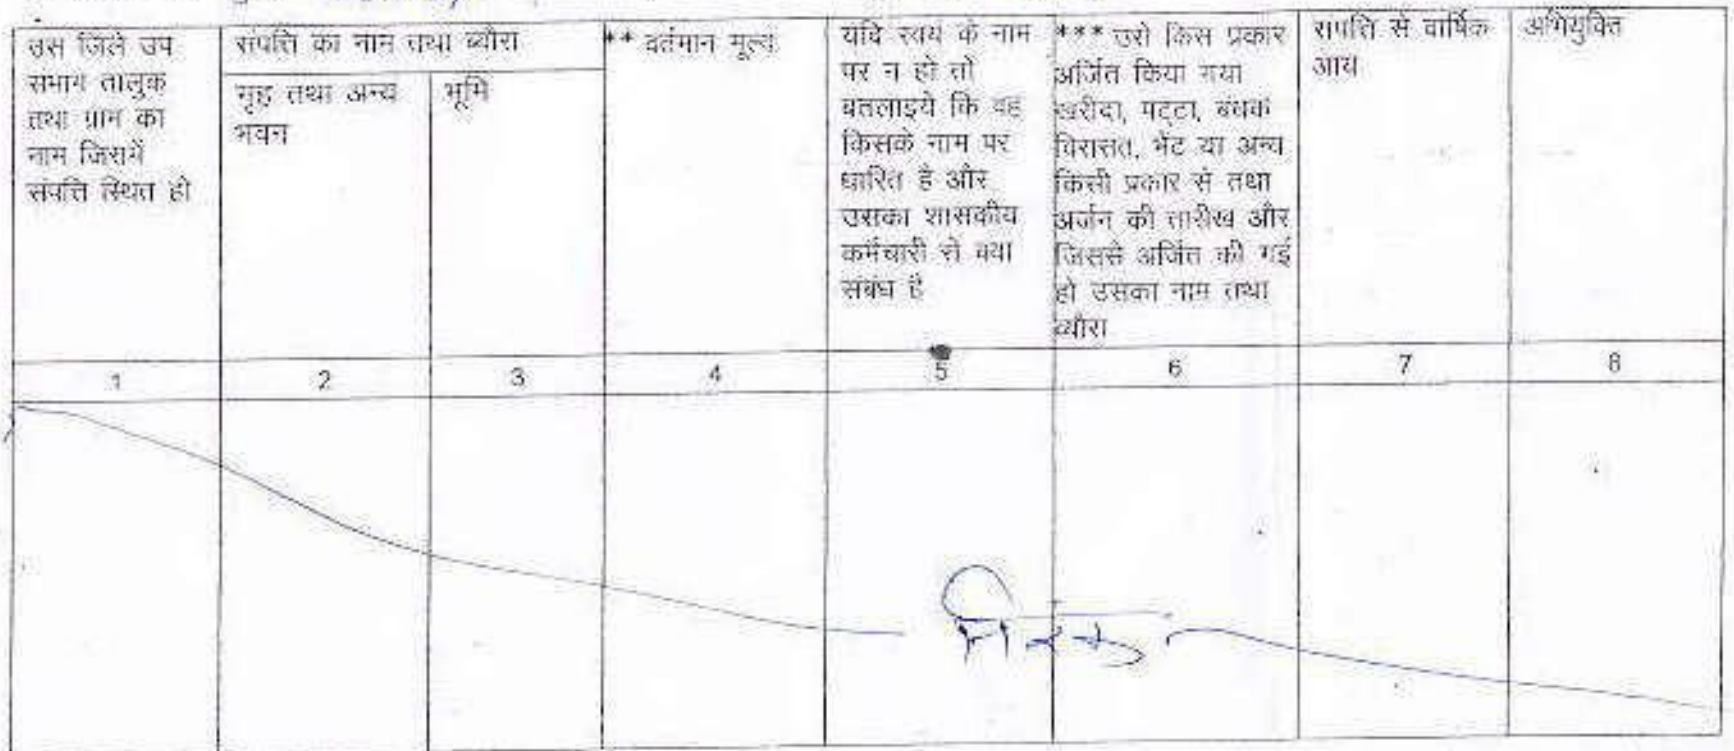 उस जिले उप
संभाग तालुक
तथा ग्राम का
नाम जिसमें
संपत्ति स्थित हो
संपत्ति का नाम तथा ब्यौरा
गृह तथा अन्य
भवन
भूमि
** वर्तमान मूल्य
यदि स्वयं के नाम
पर न हो तो
बतलाइये कि वह
किसके नाम पर
धारित है और
उसका शासकीय
कर्मचारी से क्या
संबंध है
*** उसे किस प्रकार
अर्जित किया गया
खरीदा, पट्टा, बंधक
विरासत, भेंट या अन्य
किसी प्रकार से तथा
अर्जन की तारीख और
जिससे अर्जित की गई
हो उसका नाम तथा
ब्यौरा
संपत्ति से वार्षिक
आय
अभियुक्ति
1 2 3 4 5 6 7 8